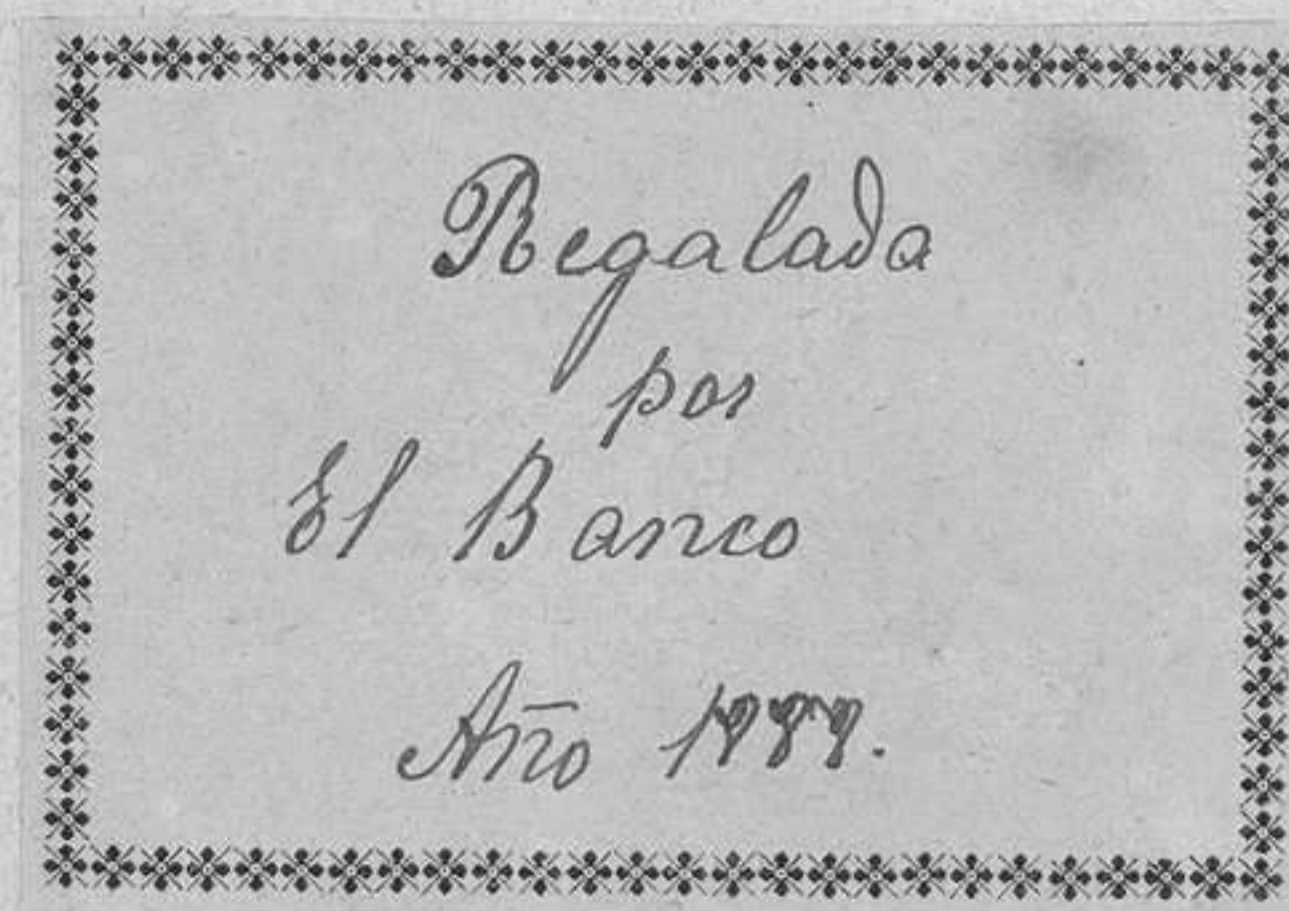 Regalada
por
El Banco
Año